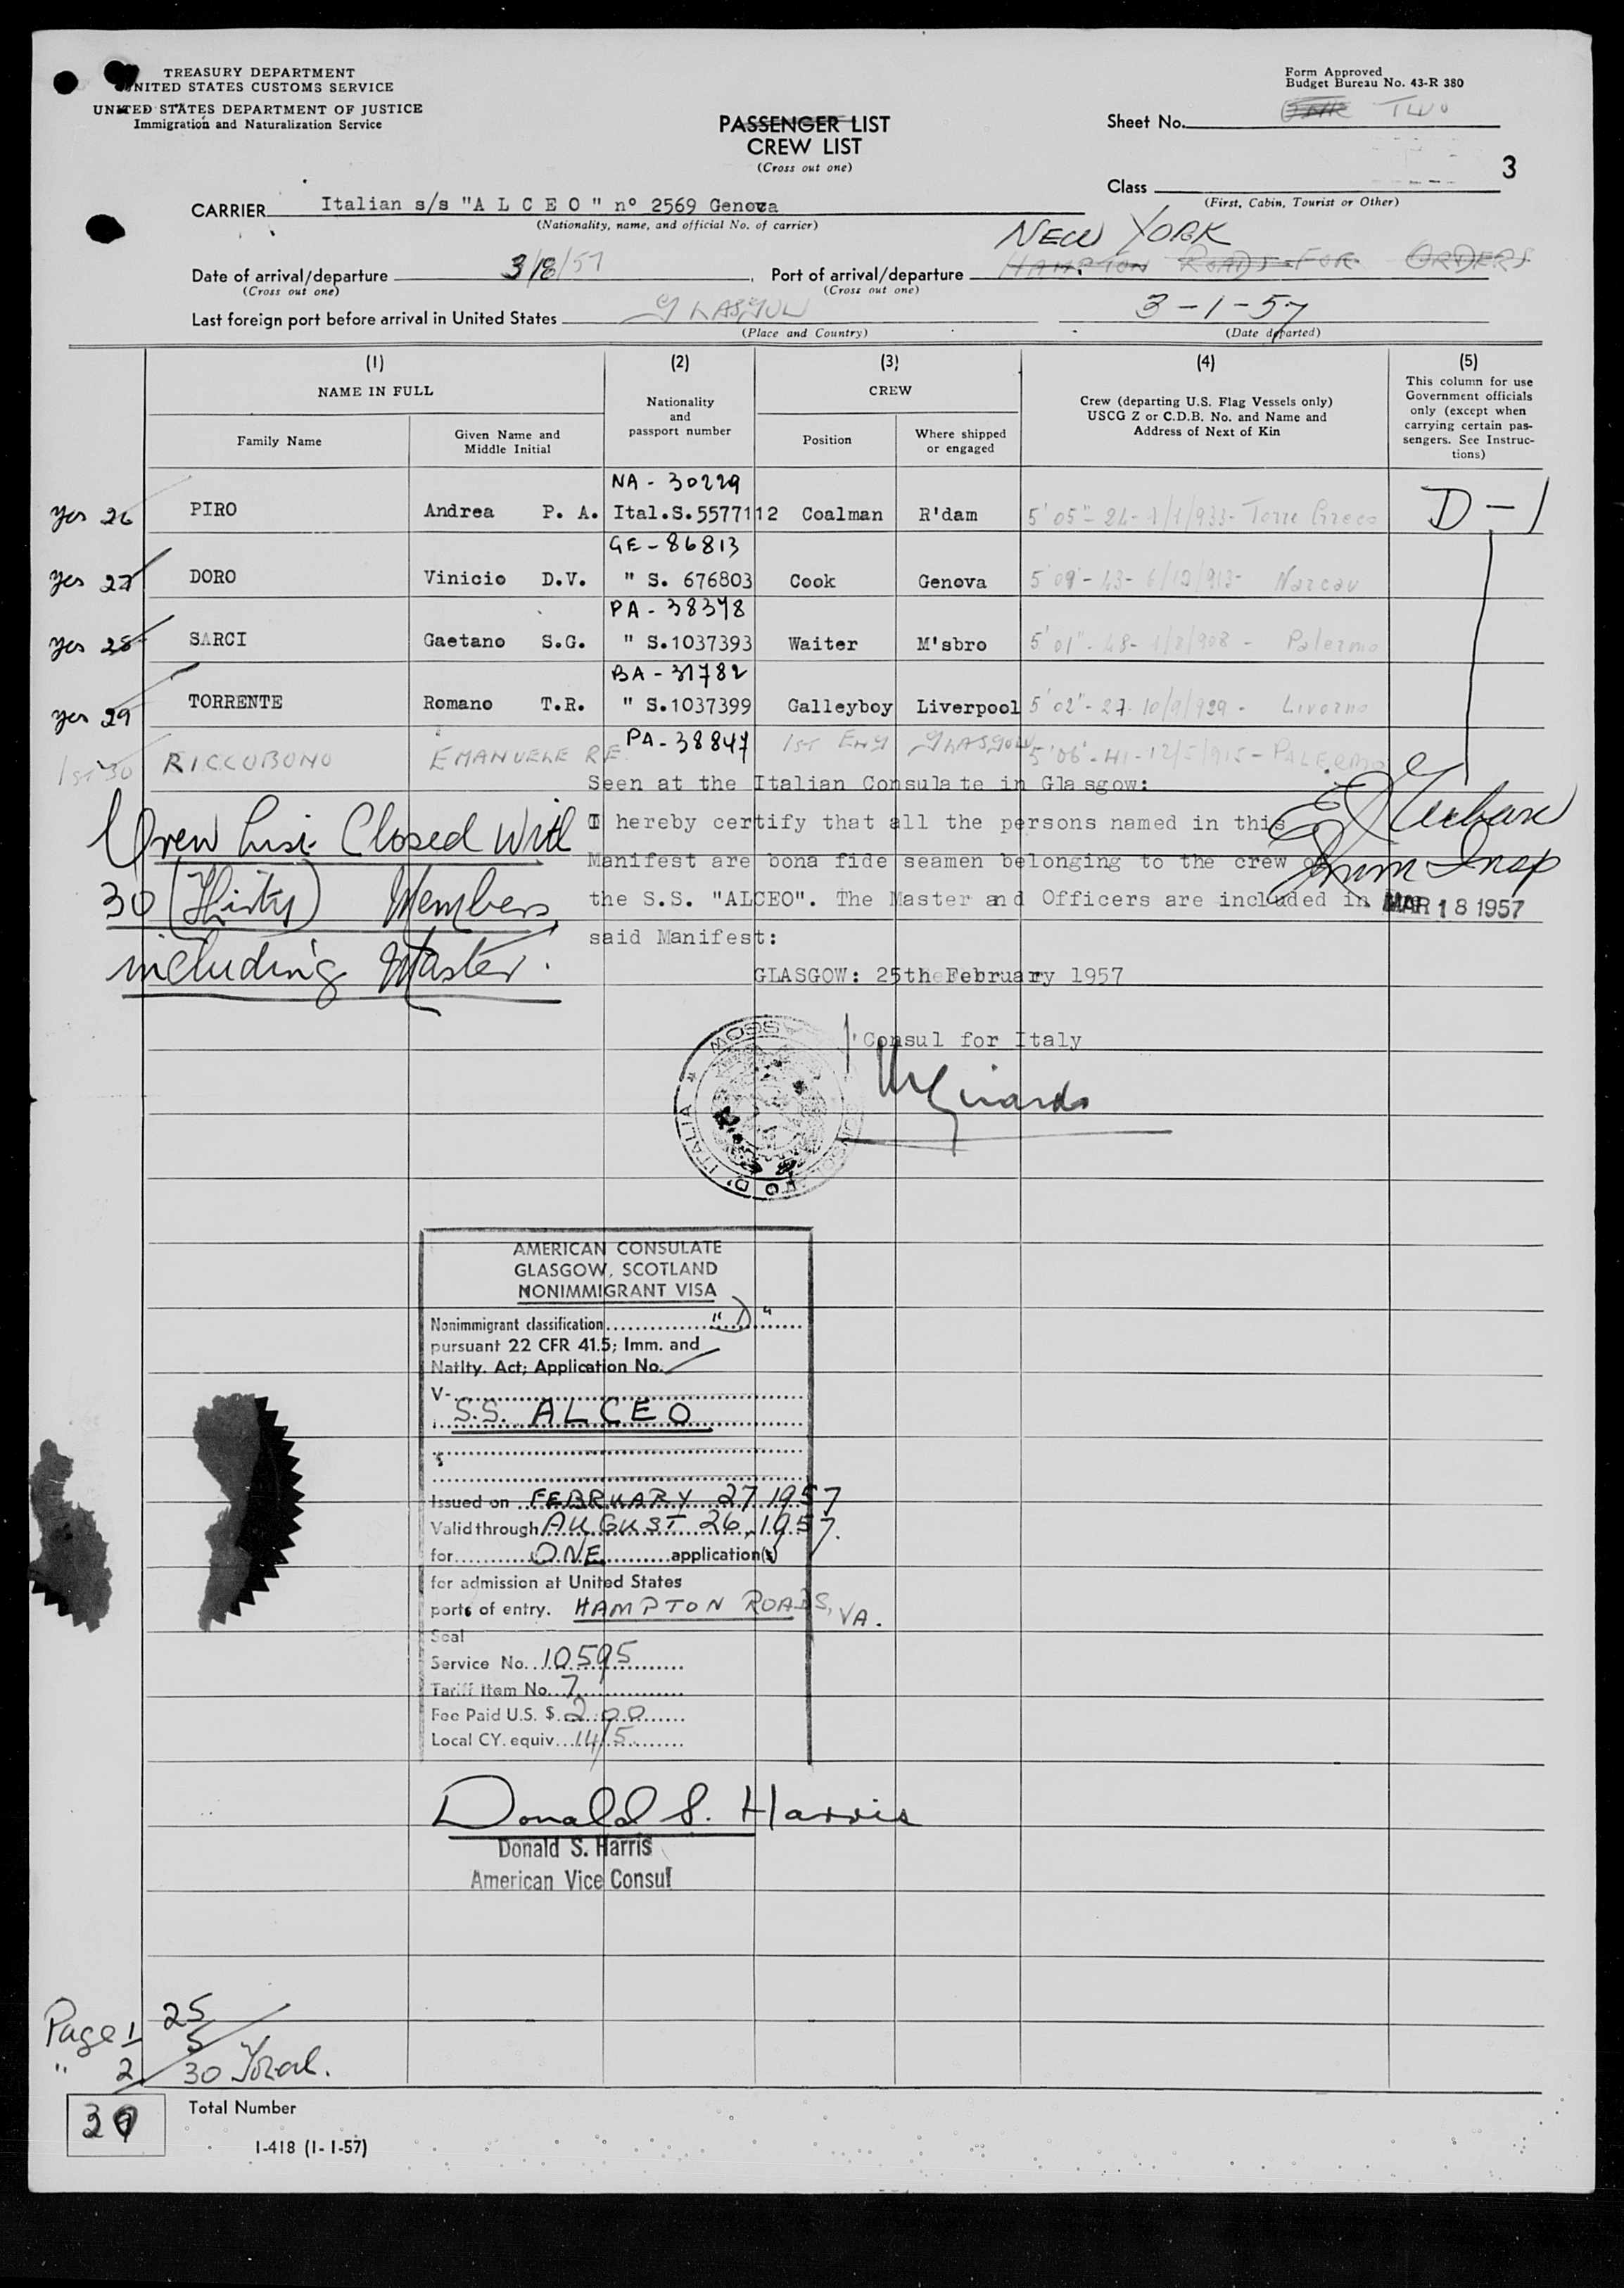 TREASURY DEPARTMENT
UNITED STATES CUSTOMS SERVICE
UNITED STATES DEPARTMENT OF JUSTICE
Immigration and Naturalization Service
Form Approved
Budget Bureau No. 43-R 380
PASSENGER LIST
CREW LIST
(Cross out one)
Sheet No. ONE TWO
3
Class
(First, Cabin, Tourist or Other)
CARRIER Italian s/s "A L C E O " nº 2569 Genova
(Nationality, name, and official No. of carrier)
NEW YORK
Date of arrival/departure 3/18/57, Port of arrival/departure HAMPTON ROADS FOR ORDERS
(Cross out one) (Cross out one)
Last foreign port before arrival in United States GLASGOW 3-1-57
(Place and Country) (Date departed)
(1) (2) (3) (4) (5)
NAME IN FULL
Nationality and passport number
CREW
Crew (departing U.S. Flag Vessels only) USCG Z or C.D.B. No. and Name and Address of Next of Kin
This column for use Government officials only (except when carrying certain passengers. See Instructions)
Family Name Given Name and Middle Initial Position Where shipped or engaged
NA - 30229
yes 26 PIRO Andrea P. A. Ital.S.5577112 Coalman R'dam 5'05"- 24- 1/1/933- Torre Greco D-1
GE - 86813
yes 27 DORO Vinicio D.V. " S. 676803 Cook Genova 5'09"- 43- 6/12/913- Narcao
PA - 38378
yes 28 SARCI Gaetano S.G. " S.1037393 Waiter M'sbro 5'01"- 48- 1/8/908 - Palermo
BA - 31782
yes 29 TORRENTE Romano T.R. " S.1037399 Galleyboy Liverpool 5'02"- 27- 10/9/929 - Livorno
PA - 38847
1st 30 RICCOBONO EMANUELE R E 1ST ENG GLASGOW 5'06"- 41- 12/5/915 - PALERMO
Seen at the Italian Consulate in Glasgow:
I hereby certify that all the persons named in this
Manifest are bona fide seamen belonging to the crew of
the S.S. "ALCEO". The Master and Officers are included in
said Manifest:
Crew List Closed With
30 (Thirty) Members
including Master.
Imm Insp
MAR 18 1957
GLASGOW: 25th February 1957
Consul for Italy
AMERICAN CONSULATE
GLASGOW, SCOTLAND
NONIMMIGRANT VISA
Nonimmigrant classification "D"
pursuant 22 CFR 41.5; Imm. and
Natlty. Act; Application No.
V-
S.S. ALCEO
Issued on FEBRUARY 27 1957
Valid through AUGUST 26, 1957.
for ONE application(s)
for admission at United States
ports of entry. HAMPTON ROADS, VA.
Seal
Service No. 10595
Tariff Item No. 7
Fee Paid U.S. $ 2.00
Local CY. equiv. 14/5
Donald S. Harris
Donald S. Harris
American Vice Consul
Page 1 25
" 2 5
30 Total.
30
Total Number
I-418 (1-1-57)